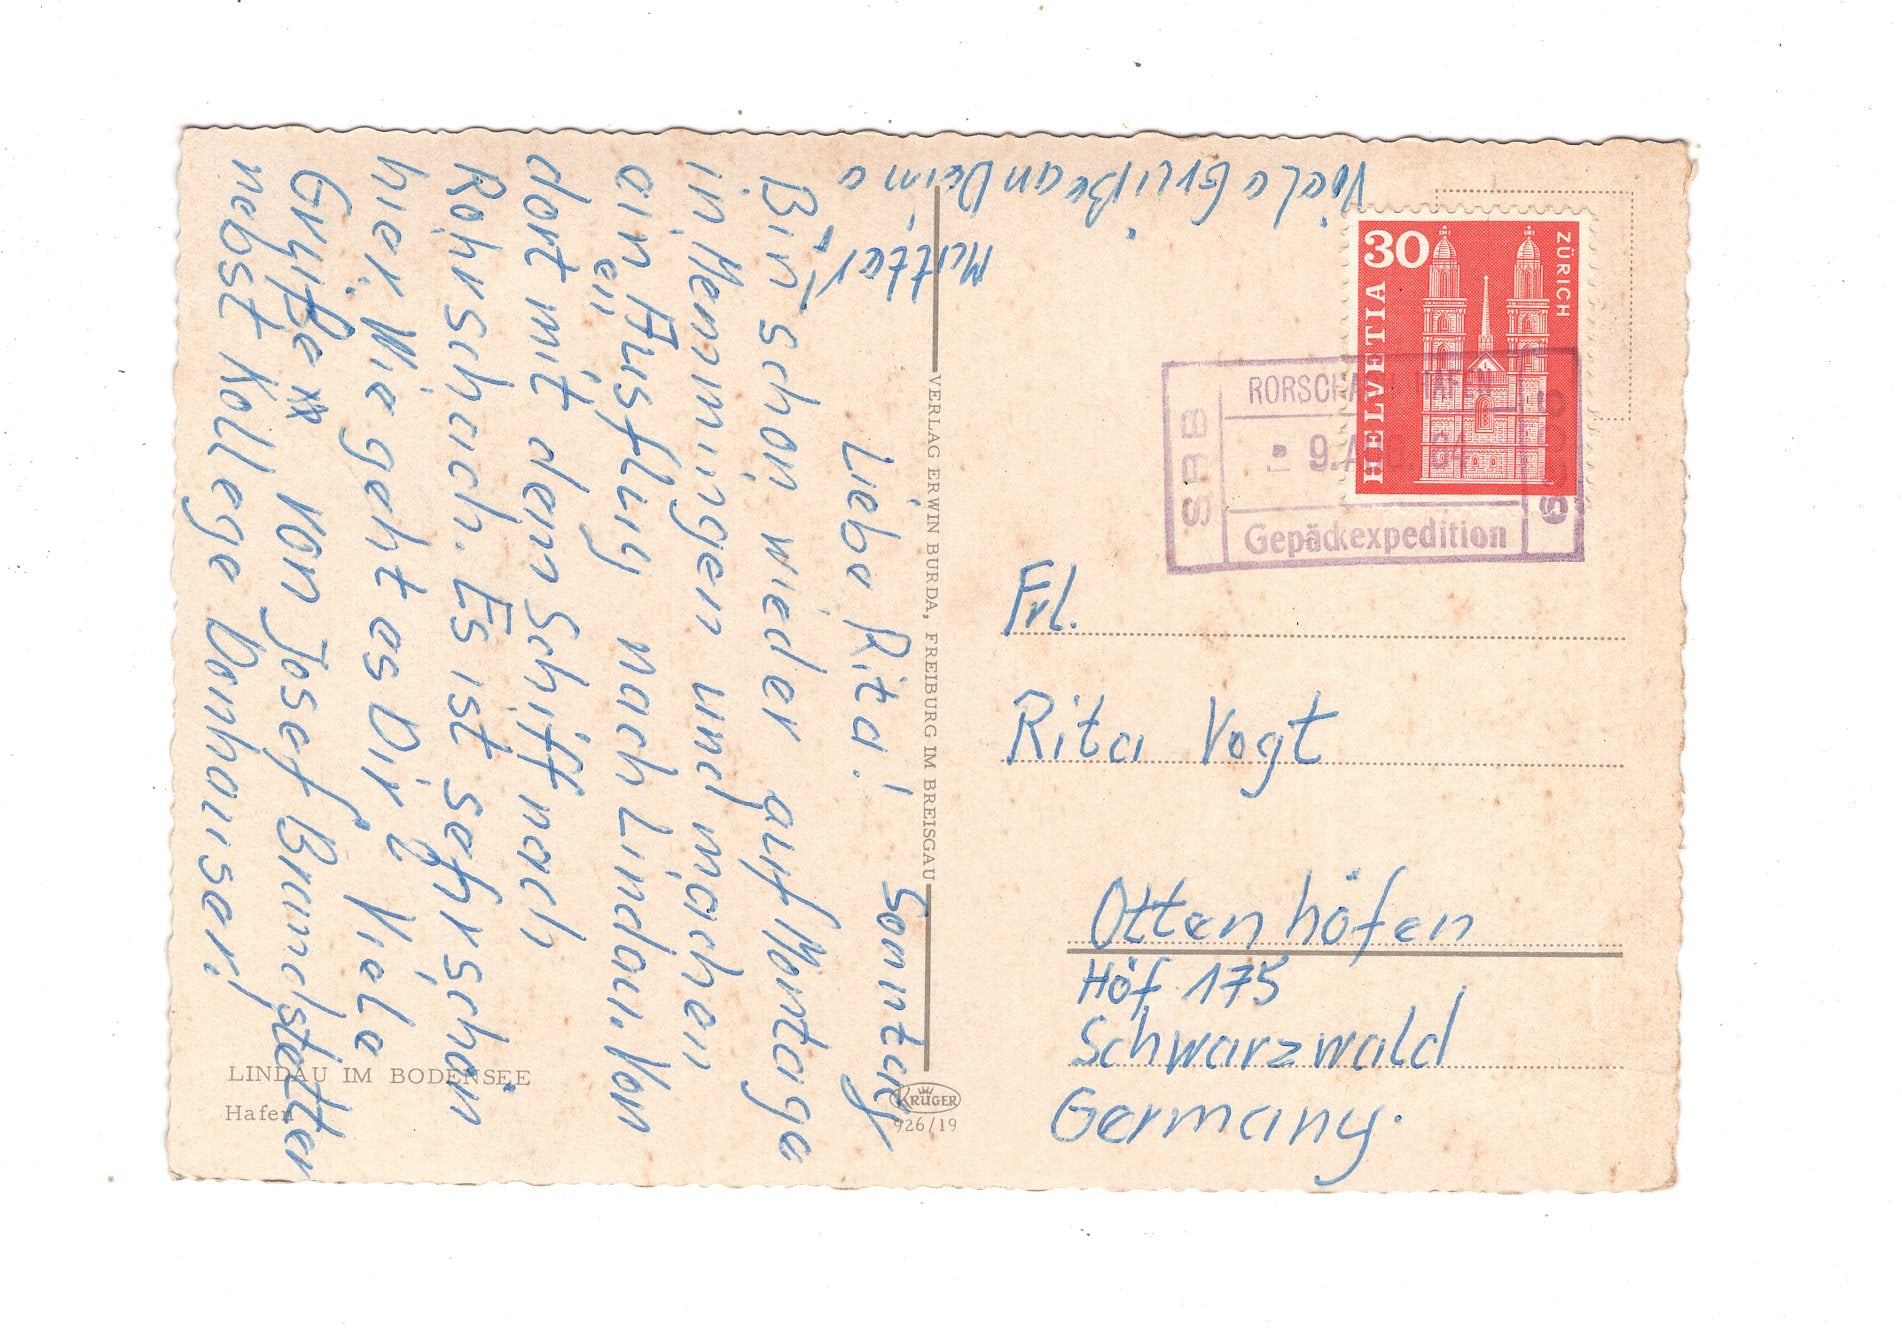 Sonntag
Liebe Rita!
Bin schon wieder auf Montage
in Memmingen und machen
ein Ausflug nach Lindau. Von
en
dort mit dem Schiff nach
Rohrschach. Es ist sehr schön
hier. Wie geht es Dir? Viele
Grüße von Josef Brandstetter
nebst Kollege Donhauser!
Viele Grüße an Deine
Mutter
VERLAG ERWIN BURDA, FREIBURG IM BREISGAU
LINDAU IM BODENSEE
Hafen
KRÜGER
926/19
30
ZÜRICH
HELVETIA
SBB
9.
Gepäckexpedition
Frl.
Rita Vogt
Ottenhöfen
Höf 175
Schwarzwald
Germany.